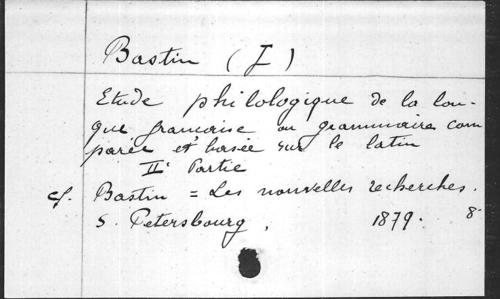 Bastin (J)
Etude philologique de la lan-
gue française ou grammaire com
parée et basée sur le latin
IIe Partie
cf. Bastin = Les nouvelles recherches.
S. Petersbourg, 1879. 8°